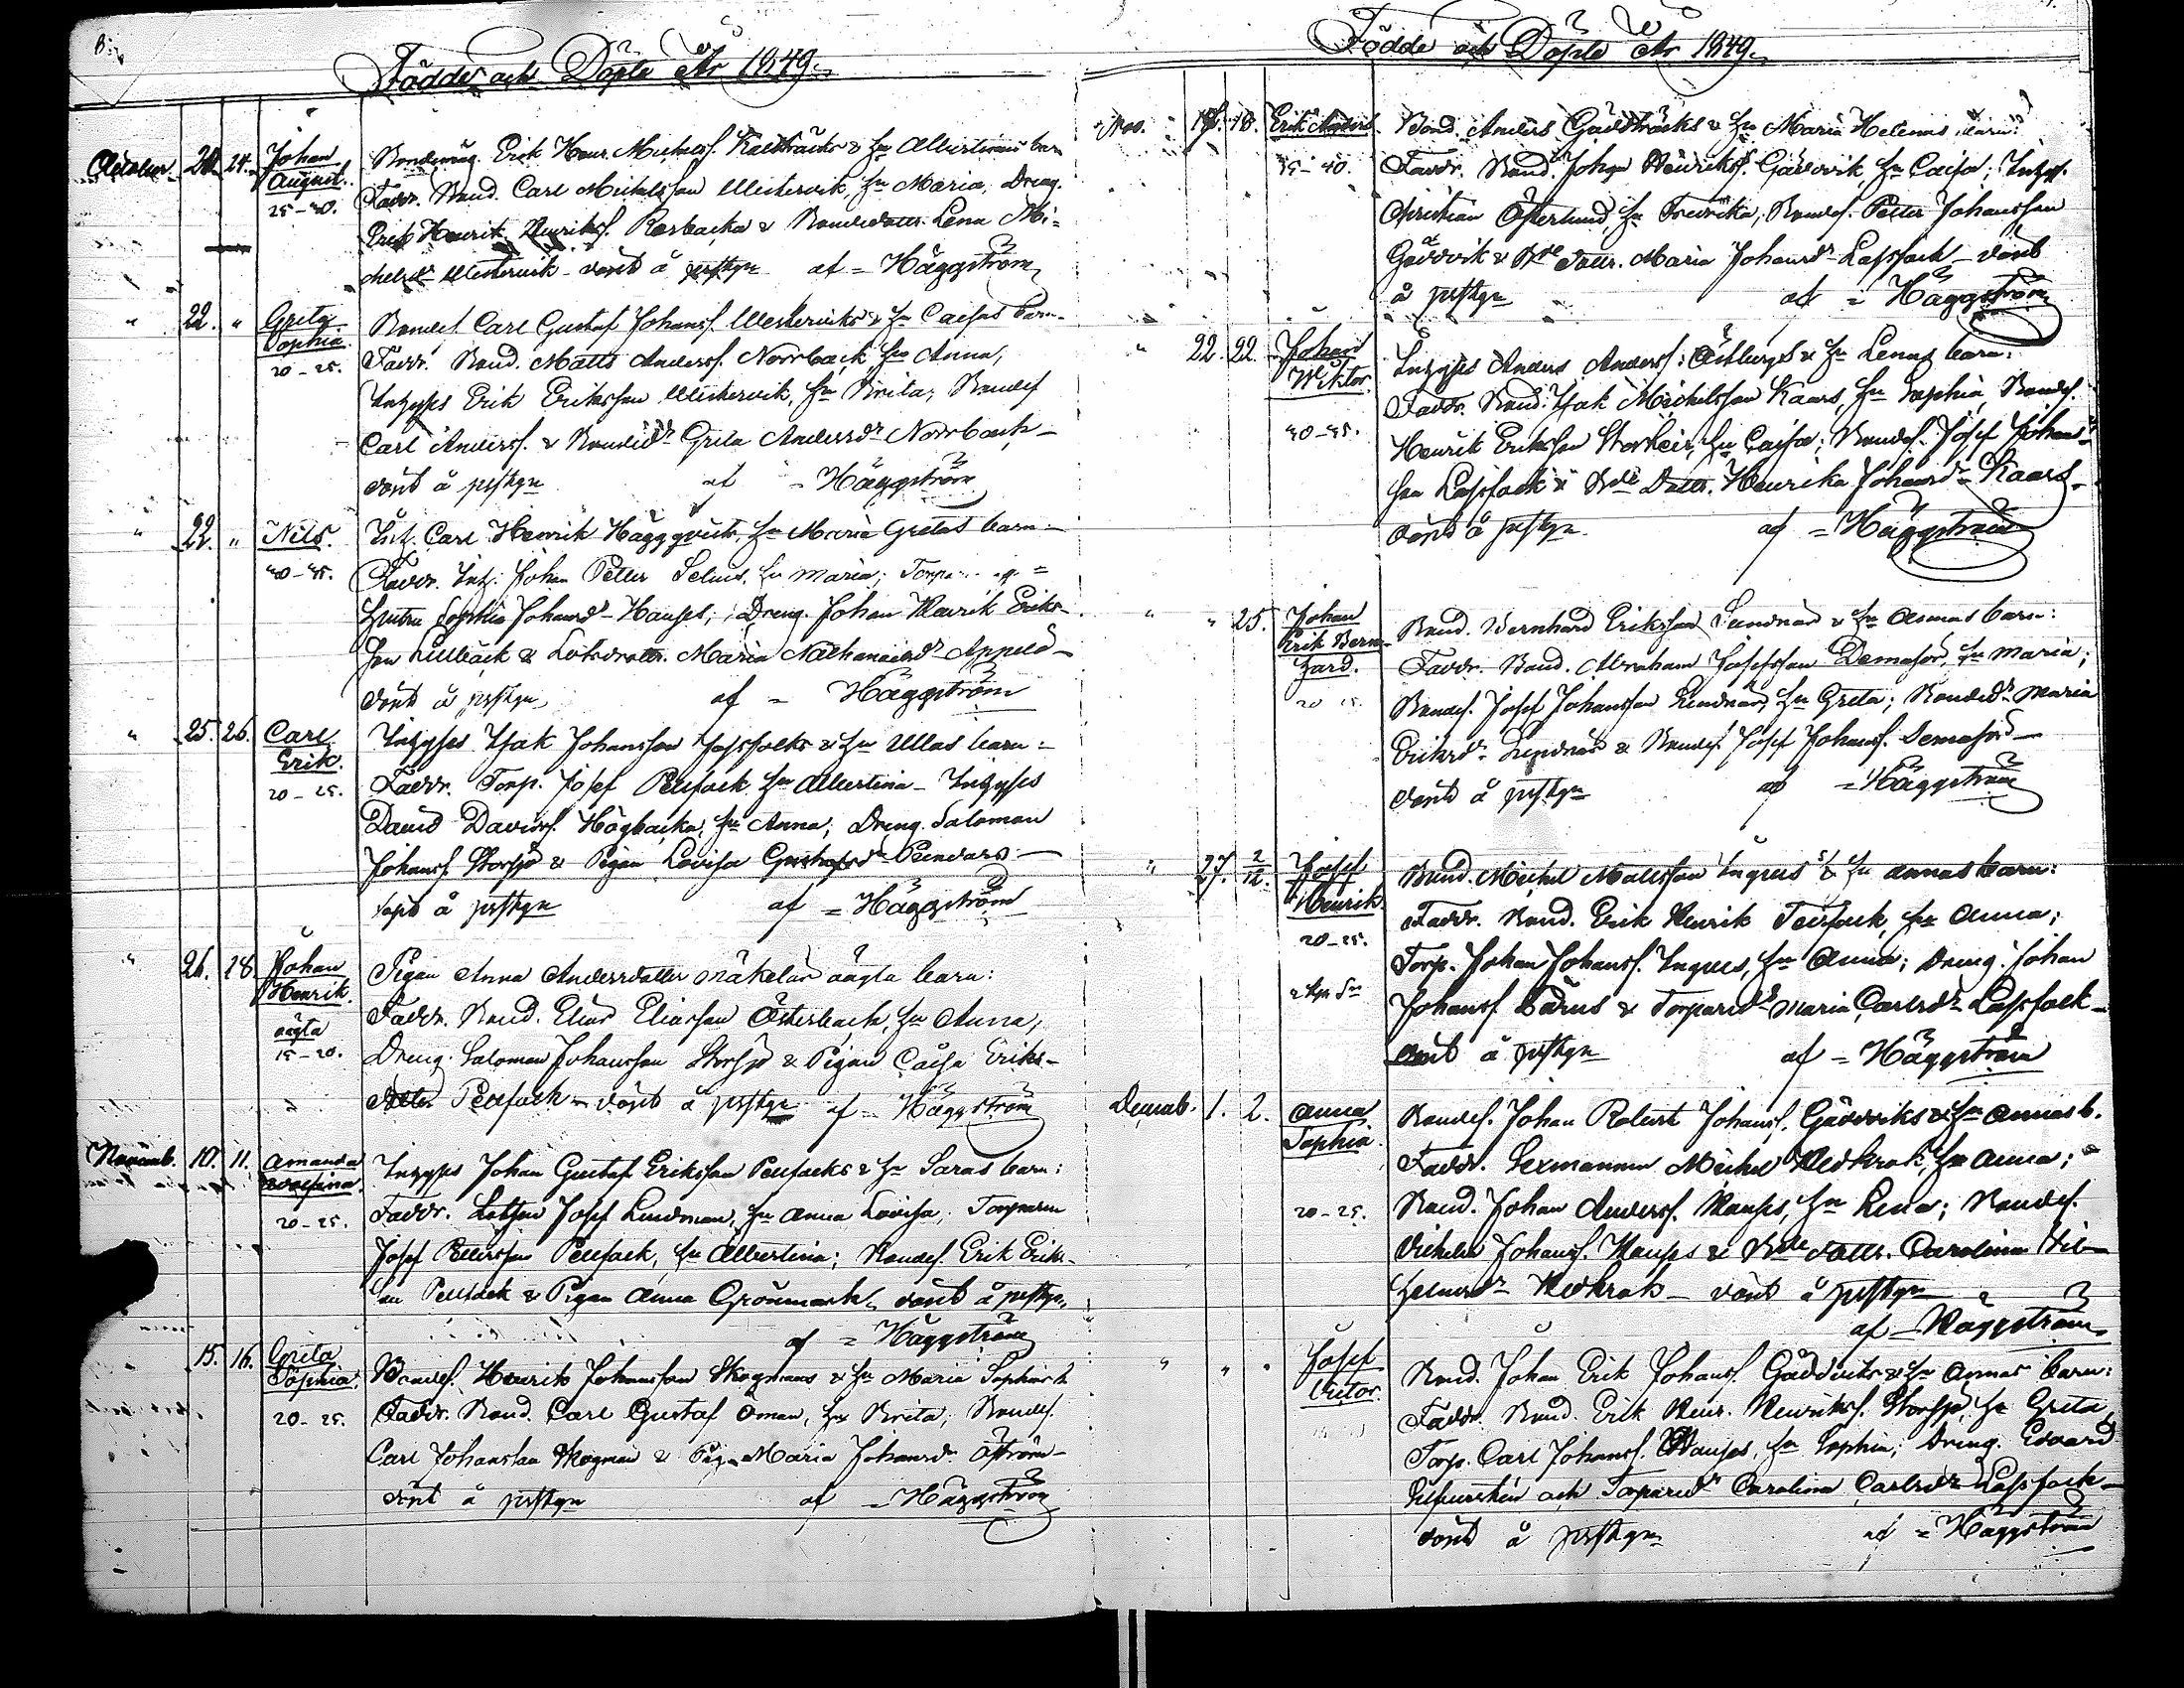 Födde och Döpte År 1849.
October. 20. 24. Johan August. Bondemåg. Erik Henr. Michelsf. Kalkträcks & hu Albertinas barn
25-30. Faddr. Bond. Carl Michelsson Westervik, hu Maria, Dreng.
Erik Henrik Henriksf. Rosbacka & Bondedottr. Lena Mi-
chelsdr Westervik - döpt å prstgn af = Häggström
" 22. " Greta Sophia. Bondes. Carl Gustaf Johansf. Westerviks & hu Caisas barn.
20-25. Faddr. Bond. Matts Andersf. Norrback, hu Anna,
Inhyses Erik Eriksson Westervik, hu Brita; Bondes
Carl Andersf. & Bondedr Greta Andersdr Norrback -
döpt å prstgn af = Häggström
" 22. " Nils. Inh. Carl Henrik Häggqvists, hu Maria Gretas barn -
40-45. Faddr. Inh. Johan Petter Selins, hu Maria;
Sophia Johansdr Hanses; Dreng. Johan Henrik Eriks-
son Lillbäck & Lotsdottr. Maria Nathanaelsdr Appelö -
döpt å prstgn af = Häggström
" 25. 26. Carl Erik. Inhyses Isak Johansson Lassfolks & hu Ullas barn -
20-25. Faddr. Torp. Josef Pellfolk hu Albertina - Inhyses
David Davidsf. Högbacka, hu Anna; Dreng. Salomon
Johansf. Storsjö & Pigan Lovisa Gustafsdr Pundars -
döpt å prstgn af = Häggström
" 26. 28. Johan Henrik. Pigan Anna Andersdotter oägta barn:
oägta Faddr. Bond. Elias Eliasson Österback, hu Anna,
15-20. Dreng. Salomon Johansson Storsjö & Pigan Caisa Eriks-
dotter Pellfolk - döpt å prstgn af = Häggström
Novemb. 10. 11. Amanda Inhyses Johan Gustaf Eriksson Pellfolks & hu Saras barn:
20-25. Faddr. Lotsen Josef Lindman, hu Anna Lovisa, Torparen
Josef Pettersson Pellfolk, hu Albertina; Bondes. Erik Eriks-
son Pellfolk & Pigan Anna Grönmark - döpt å prstgn
af = Häggström
15. 16. Greta Sophia. Bondes. Henrik Johansson Skogmans & hu Maria Sophias b
20-25. Faddr. Bond. Carl Gustaf Öman, hu Brita, Bondes.
Carl Johansson Skogman & Pig. Maria Johansdr Åström -
döpt å prstgn af = Häggström
Födde och Döpte År 1849.
Nov. 18. 18. Erik Anders. Bond. Anders Gäddträcks & hu Maria Helenas barn:
35-40. Faddr. Bond. Johan Henriksf. Gäddvik, hu Caisa; Inhys.
Christian Österlund, hu Fredrika; Bondes. Petter Johansson
Gäddvik & Bde dottr. Maria Johansdr Lassfolk - döpt
å prstgn af = Häggström
" 22. 22. Johan Wiktor. Inhyses Anders Andersf: Östbergs & hu Lenas barn:
Faddr. Bond. Isak Michelsson Kaars, hu Sophia, Bondes.
40-45. Henrik Eriksson Storkeis, hu Caisa; Bondes. Josef Johans-
son Lassfolk & Bde Dottr. Henrika Johansdr Kaars -
döpt å prstgn af = Häggström
" " 25. Johan Erik Bernhard. Bond. Bernhard Eriksson Sundnäs & hu Annas barn:
Faddr. Bond. Abraham Josefsson Demasjö, hu Maria;
20 25. Bondes. Josef Johansson Sundnäs, hu Greta; Bondedr Maria
Eriksdr Sundnäs & Bondes. Josef Johansf. Demasjö -
döpt å prstgn af = Häggström
" 27. 2/12. Josef Henrik. Bond. Michel Mattsson Ingves & hu Annas barn:
Faddr. Bond. Erik Henrik Teirfolk, hu Anna;
20-25. Torp. Johan Johansf. Ingves, hu Anna; Dreng. Johan
Johansf. Bärus & Torparedr Maria Carlsdr Lassfolk -
döpt å prstgn af = Häggström
Decemb. 1. 2. Anna Sophia. Bondes. Johan Robert Johansf. Gäddviks & hu Annas b.
Faddr. Sexmannen Michel Wedkrok, hu Anna;
20-25. Bond. Johan Andersf. Hanses, hu Lena; Bondes.
Vilhelm Johansf. Hanses & Bde dottr. Carolina Vil-
helmsdr Wedkrok - döpt å prstgn
af = Häggström
" " " Josef Victor. Bond. Johan Erik Johansf. Gäddviks & hu Annas barn:
Faddr. Bond. Erik Henr. Henriksf. Storsjö, hu Greta,
Torp. Carl Johansf. Hanses, hu Sophia; Dreng. Edvard
och Torparedr Carolina Carlsdr Lassfolk -
döpt å prstgn af = Häggström